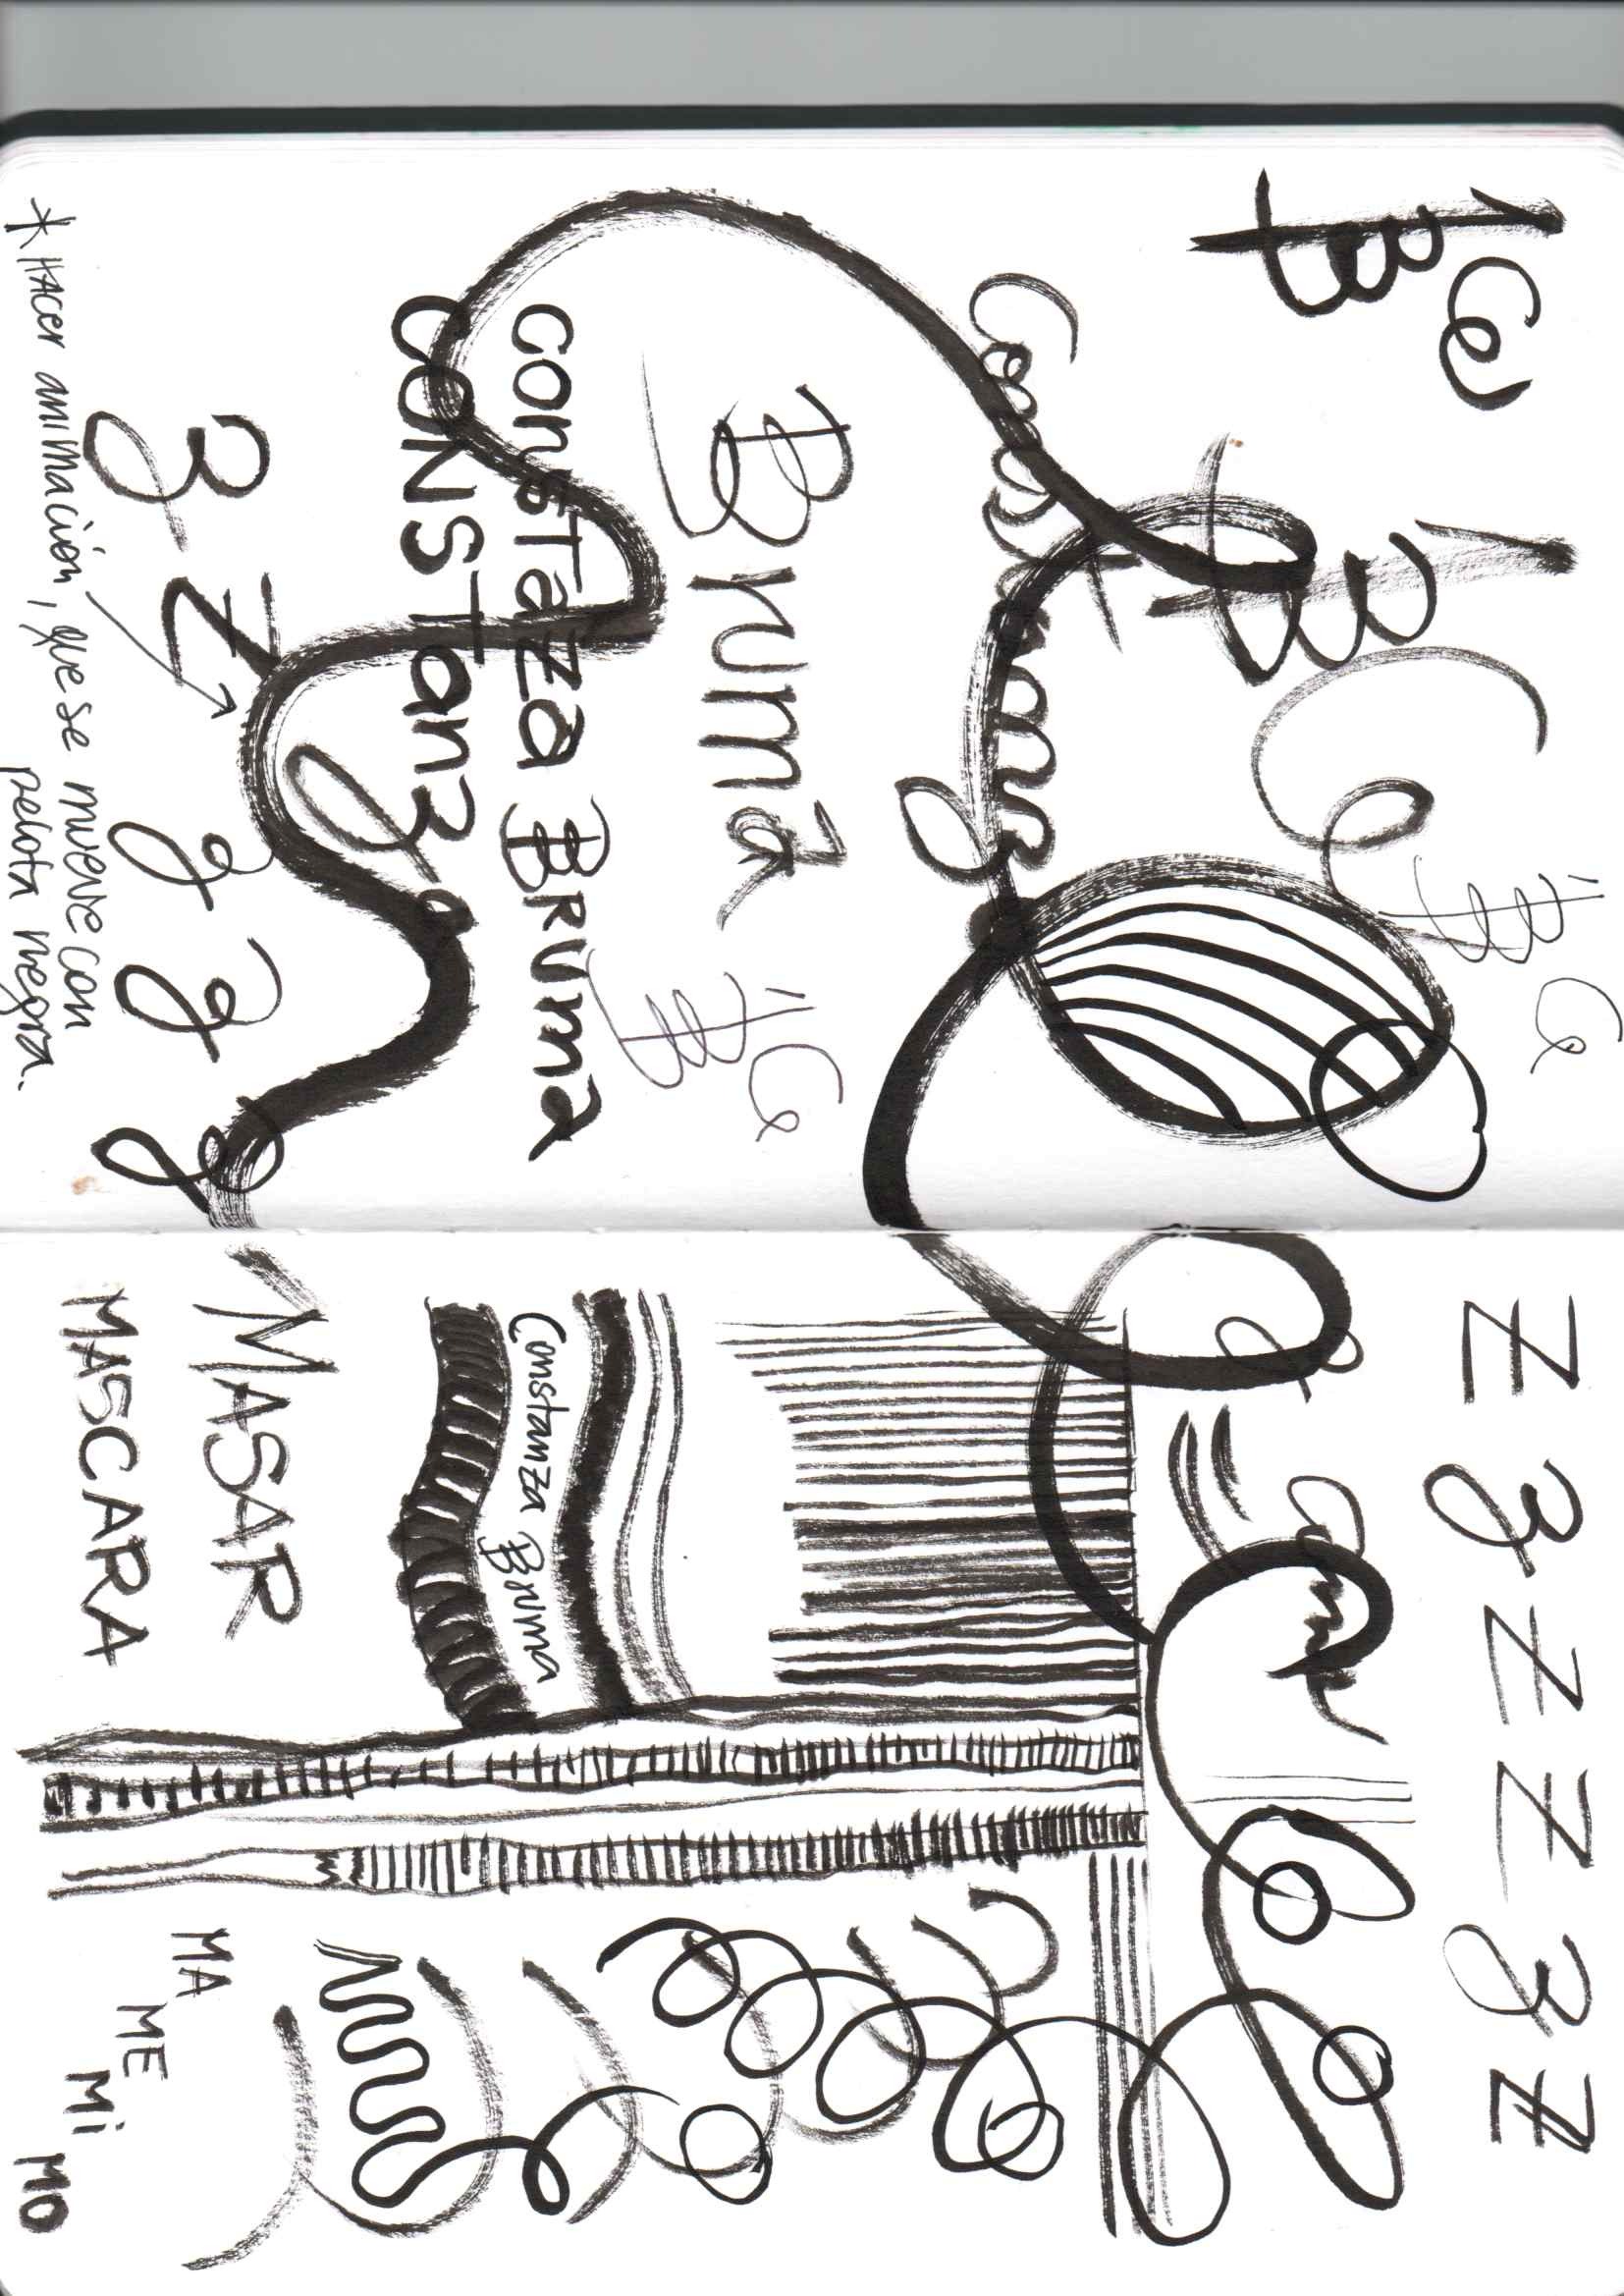 B Co
B Co
B Co
Constanza
Bruma
B Co
ConsTaza Bruma
CONSTanza
z z z z z
* HAcer animación, que se mueve con
pelota negra.
Z z Z Z z Z
Constanza Bruma
MASAR
MASCARA
MA ME Mi MO